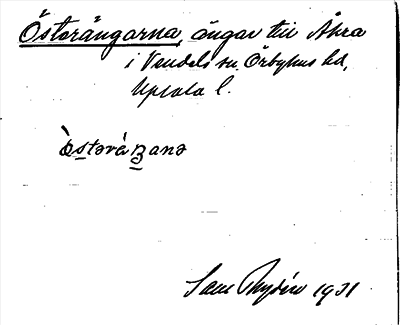 Österängarna, ängar till Åkra
i Vendels sn. Örbyhus hd,
Upsala l.
östəràŋana
Sam Rydén 1931